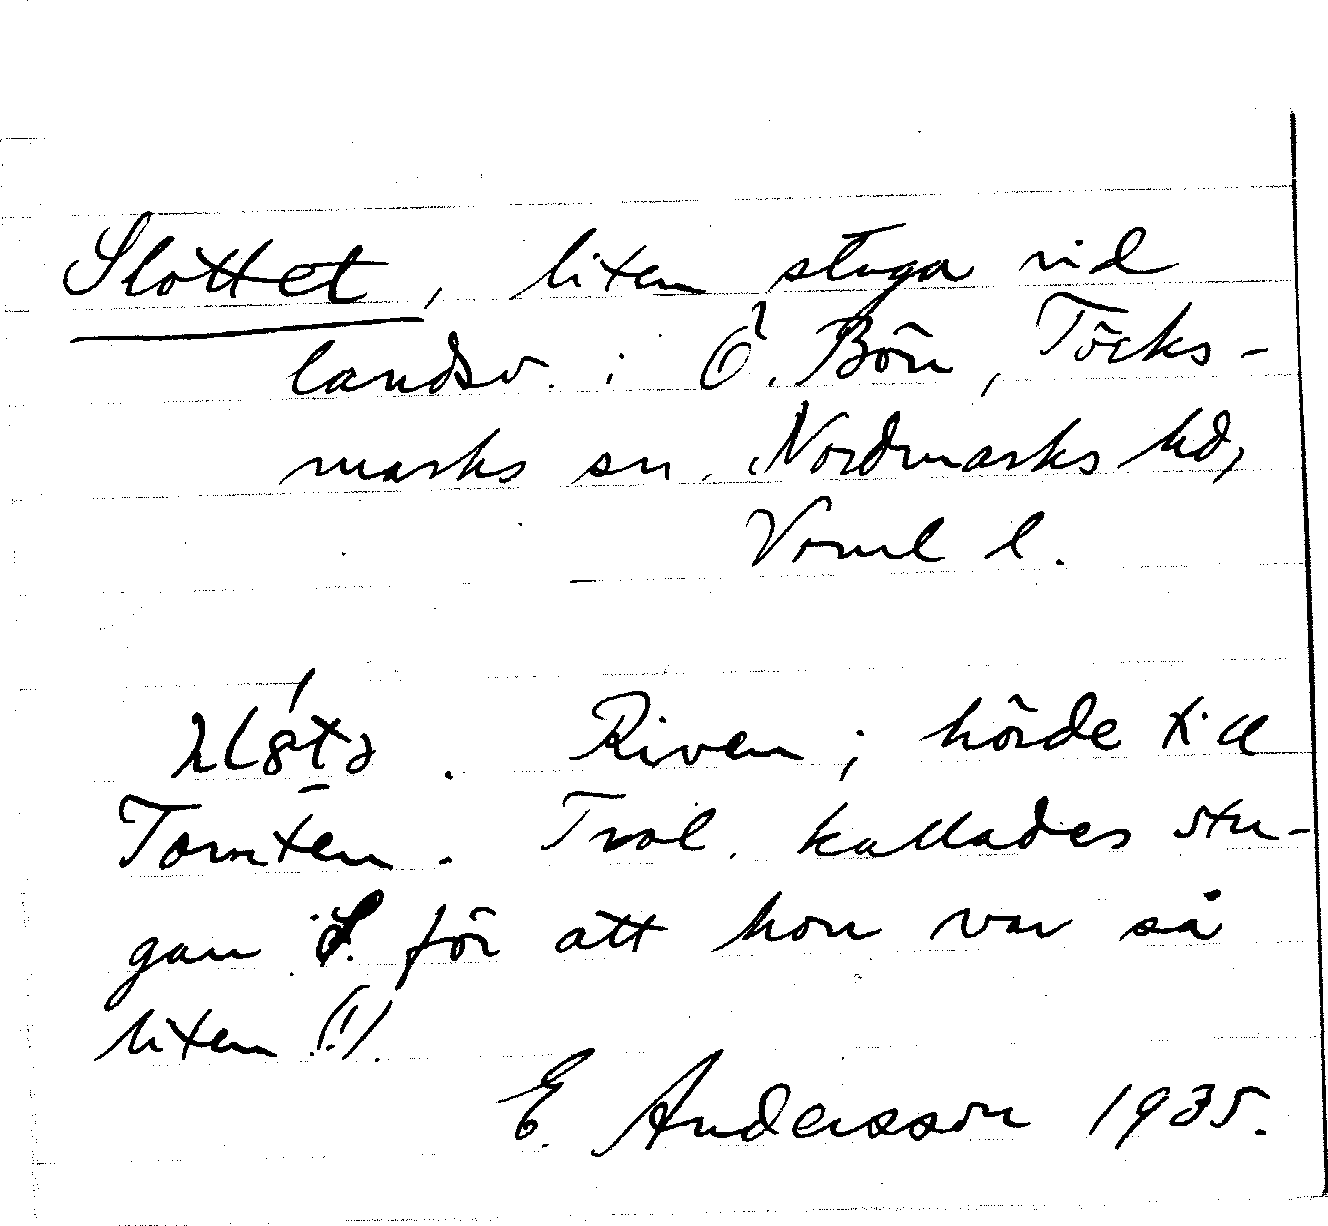 Slottet, liten stuga vid
landsv. i Ö. Bön, Töcks-
marks sn. Nordmarks hd,
Vrml l.
Riven; hörde till
Tomten. Trol. kallades stu-
gan S. för att hon var så
liten (!).
E. Andersson 1935.